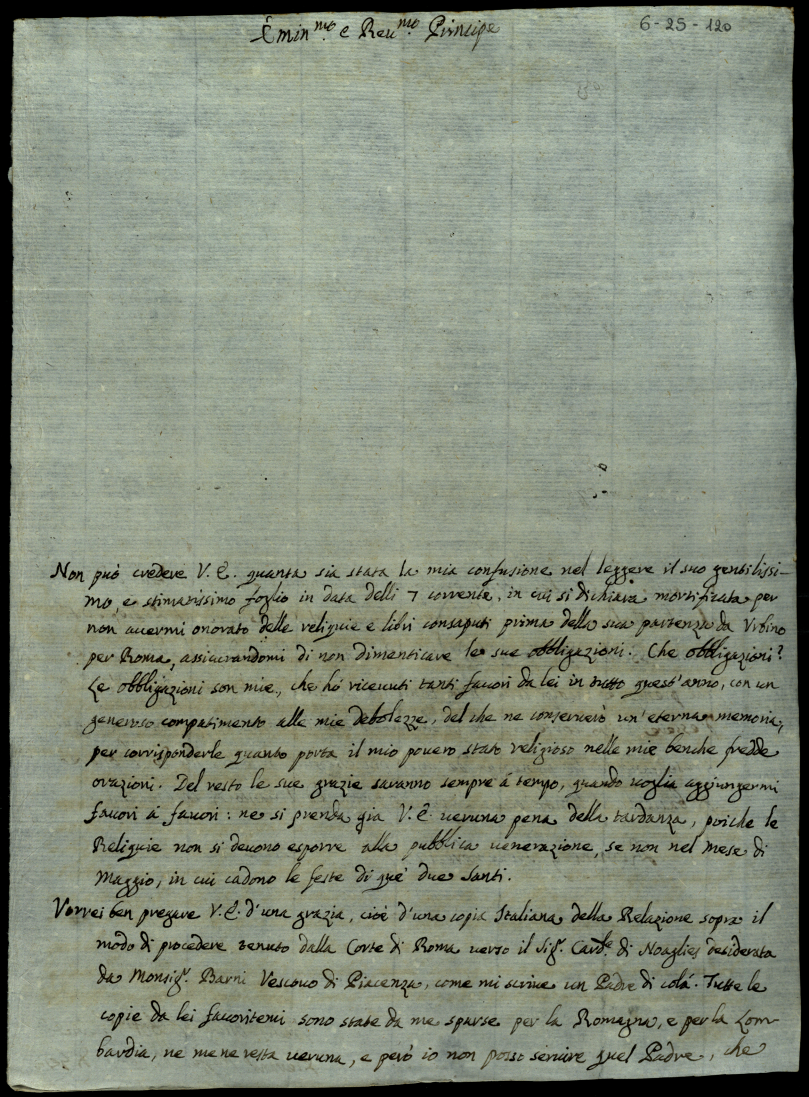 Emin.mo e Reu.mo Principe
6-25-120
Non può credere V. E. quanta sia stata la mia confusione nel leggere il suo gentilissi-
mo, e stimatissimo foglio in data delli 7 corrente, in cui si dichiara mortificata per
non auermi onorato delle reliquie e libri consaputi prima della sua partenza da Vrbino
per Roma, assicurandomi di non dimenticare le sue obbligazioni. Che obbligazioni?
Le obbligazioni son mie, che hó riceuuti tanti fauori da lei in tutto quest'anno, con un
generoso compatimento alle mie debolezze, del che ne conseruerò un'eterna memoria,
per corrisponderle quanto porta il mio pouero stato religioso nelle mie benche fredde
orazioni. Del resto le sue grazie saranno sempre á tempo, quando uoglia aggiungermi
fauori á fauori: ne si prenda gia V. E. ueruna pena della tardanza, poiche le
Reliquie non si deuono esporre alla pubblica uenerazione, se non nel Mese di
Maggio, in cui cadono le feste di que' due Santi.
Vorrei ben pregare V. E. d'una grazia, cioè d'una copia Italiana della Relazione sopra il
modo di procedere tenuto dalla Corte di Roma uerso il Sig.r Card.le di Noaglies desiderata
da Monsig.r Barni Vescouo di Piacenza, come mi scriue un Padre di colá. Tutte le
copie da lei fauoritemi sono state da me sparse per la Romagna, e per la Lom-
bardia, ne me ne resta ueruna, e però io non posso seruire quel Padre, che